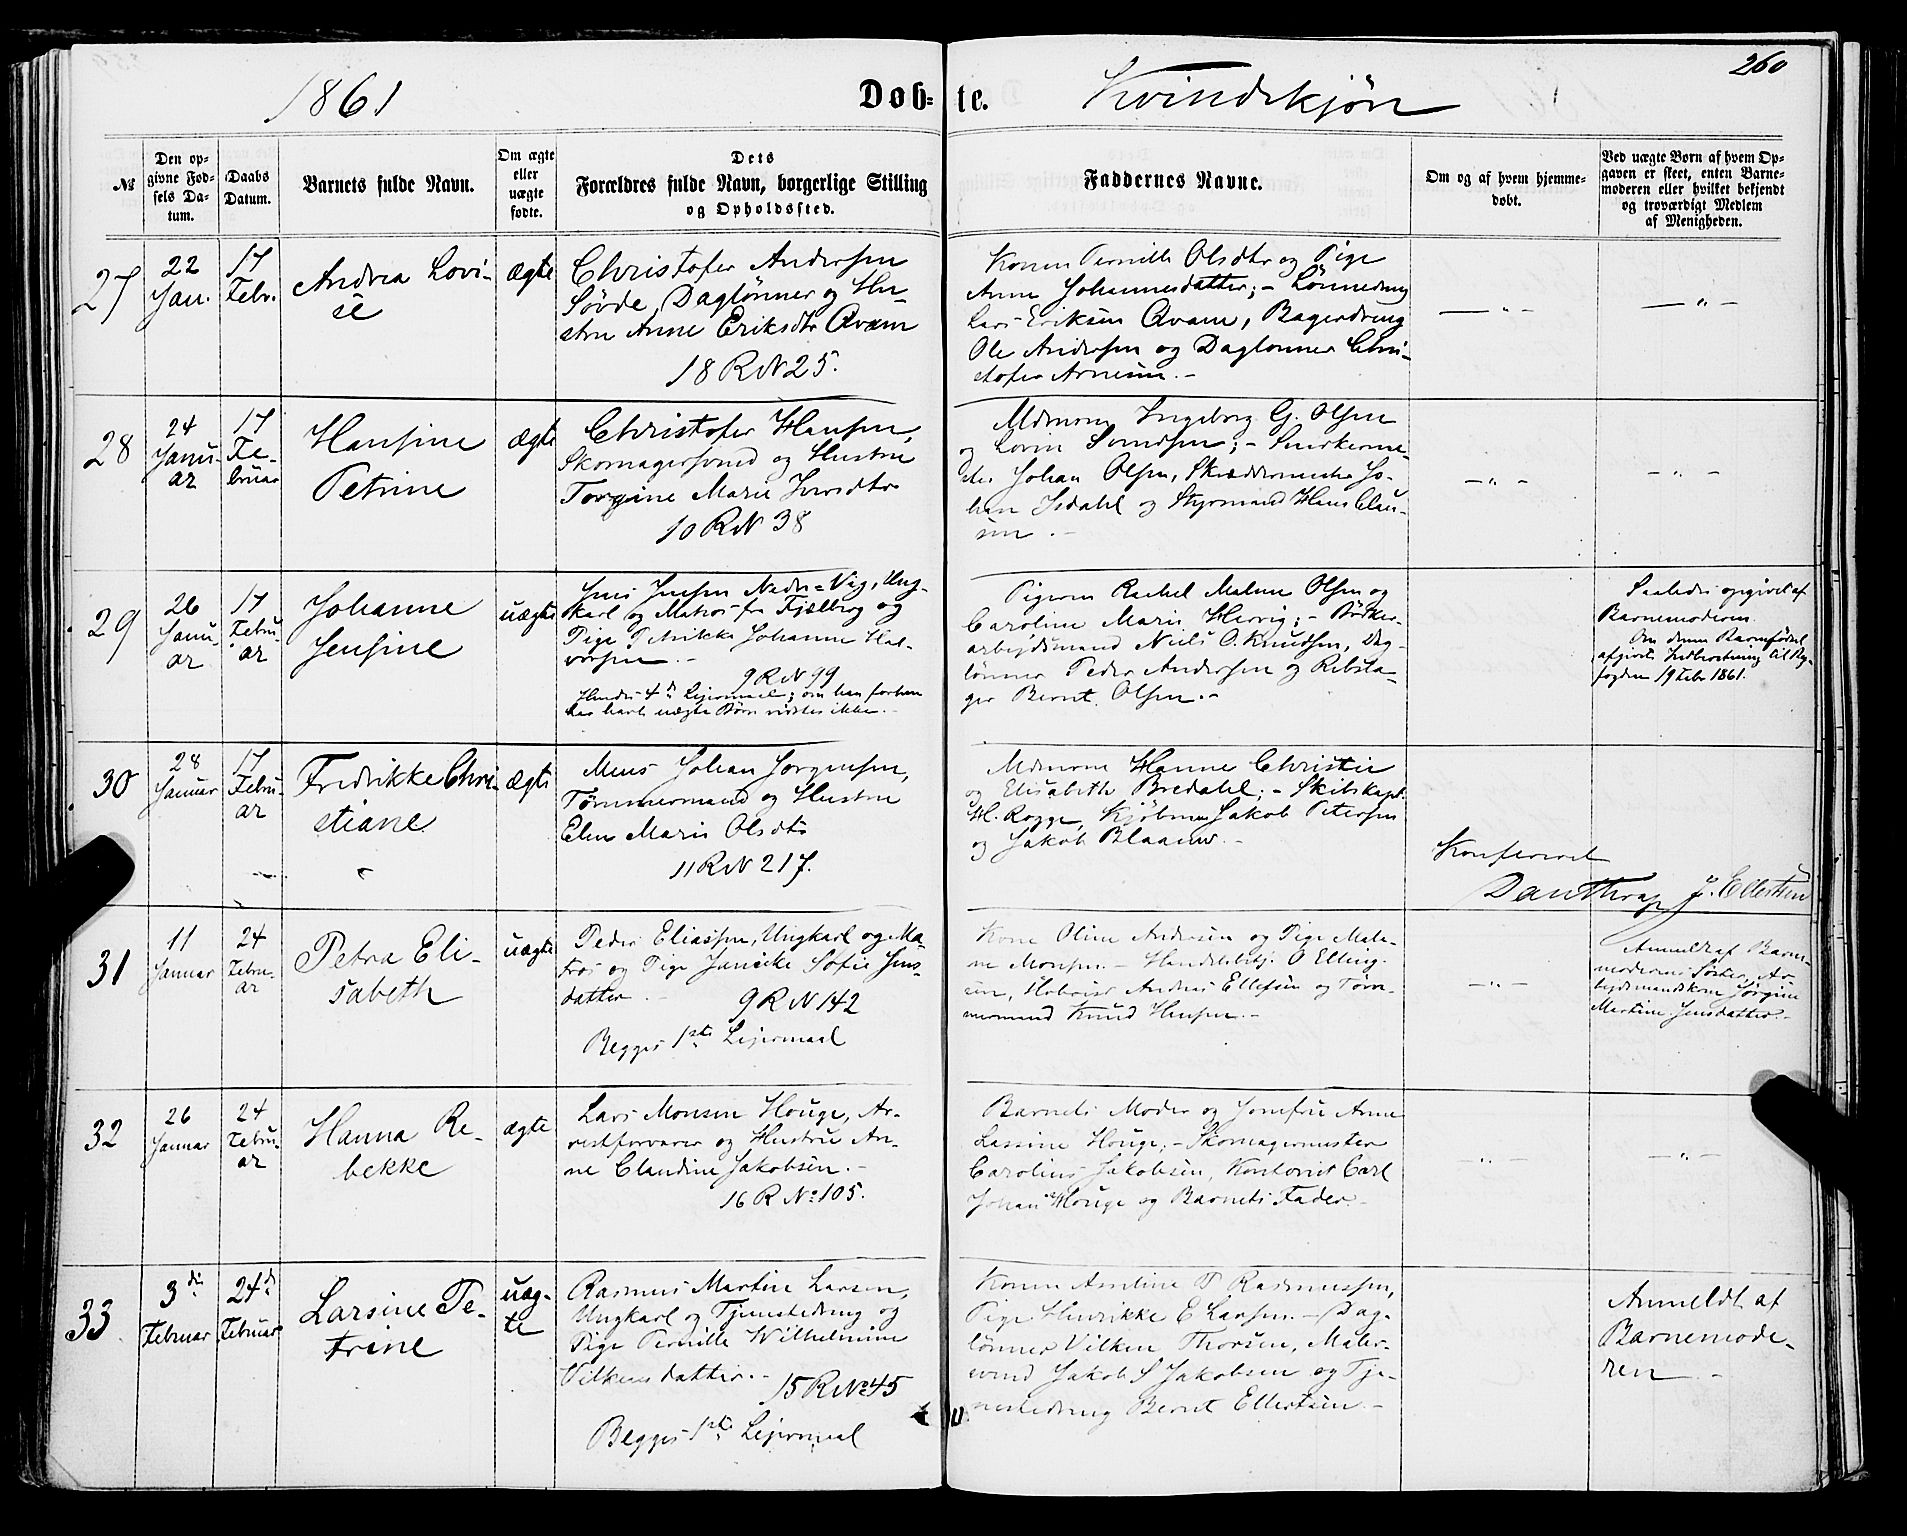 260
1861
Døb-te.
Kvindekjøn
№
Den op-
givne Fød-
sels Da-
tum.
Daabs
Datum.
Barnets fulde Navn.
Om ægte
eller
uægte
fødte.
Dets
Forældres fulde Navn, borgerlige Stilling
og Opholdssted.
Faddernes Navne.
Om og af hvem hjemme-
døbt.
Ved uægte Børn af hvem Op-
gaven er skeet, enten Barne-
moderen eller hvilket bekjendt
og troværdigt Medlem
af Menigheden.
27
22
Jan.
17
Febr.
Andrea Lovi-
se
ægte
Christofer Andersen
Søvde, Daglønner og Hu-
stru Anne Eriksdtr Qvam
18 R N 25.
Konen Pernille Olsdtr og Pige
Anne Johannesdatter; -
Lars Eriksen Qvam, Bagerdreng
Ole Andersen og Daglønner Chri-
stofer Arnesen. -
— " -
— " -
28
24
Janu-
ar
17
Fe-
bruar
Hansine
Petrine
ægte
Christofer Hansen,
Skomagersvend og Hustru
Torgine Marie Iversdtr
10 R N 38
Mdmrne Ingeborg G. Olsen
og Lovise Svendsen; - Snedkerme-
ster Johan Olsen, Skræddermester Jo-
han Isdahl og Styrmand Hans Clau-
sen. -
- " -
- " -
29
26
Janu-
ar
17
Febru-
ar
Johanne
Jensine
uægte
Jens Jensen Nedre-Vig, Ung-
karl og Matros fra Fjelberg og
Pige Petrikke Johanne Hal-
vorsen. -
9 R N 99
Hendes 4de Leiermaal; om han forhen
har havt uægte Børn vidstes ikke. -
Pigerne Rachel Malene Olsen og
Caroline Marie Hervig; - Bødker-
arbeidsmand Niels O. Knudsen, Dag-
lønner Peder Andersen og Rebsla-
ger Bernt Olsen. -
Saaledes opgivet af
Barnemoderen.
Om denne Barnefødsel
afgivet Indberetning til By-
fogden 19 Febr 1861.
30
28
Januar
17
Febru-
ar
Fredrikke Chri-
stiane
ægte
Mens Johan Jørgensen,
Tømmermand og Hustru
Elen Marie Olsdtr
11 R N 217.
Mdmrne Hanne Christie
og Elisabeth Bredahl; - Skibskapt.
H. Rogge, Kjøbmand Jakob Petersen
og Jakob Blaauw. -
Konfereret
Danthrap J. Ellertsen
31
11
Januar
24
Febru-
ar
Petra Eli-
sabeth
uægte
Peder Eliassen, Ungkarl og Ma-
tros og Pige Janicke Sofie Jens-
datter. -
9 R N 142
Begges 1ste Leiermaal
Kone Oline Andersen og Pige Male-
ne Monsen. - Handelsbetj. O Elling-
sen, Andreas Ellefsen og Tøm-
mermand Knud Hansen. -
- " -
Anmeldt af Barne-
moderens Søster, Ar-
beidsmandskone Jørgine
Martine Jensdatter. -
32
26
Januar
24
Febru-
ar
Hanna Re-
bekke
ægte
Lars Monsen Houge, Ar-
restforvarer og Hustru An-
ne Claudine Jakobsen. -
16 R No 105.
Barnets Moder og Jomfru Anne
Lassine Houge; - Skomagermester
Carolius Jakobsen, Kontorist Carl
Johan Houge og Barnets Fader. -
- " -
- " -
33
3de
Februar
24de
Februar
Larsine Pe-
trine
uæg-
te
Rasmus Martin Larsen,
Ungkarl og Tjenestedreng og
Pige Pernille Wilhelmine
Vilkensdatter. -
15 R No 45
Begges 1ste Leiermaal
Konen Amline P Rasmussen,
Pige Henrikke E Larsen. - Dag-
lønner Vilken Thorsen, Maler-
svend Jakob S Jakobsen og Tje-
nestedreng Bernt Ellertsen. -
Anmeldt af
Barnemode-
ren. -